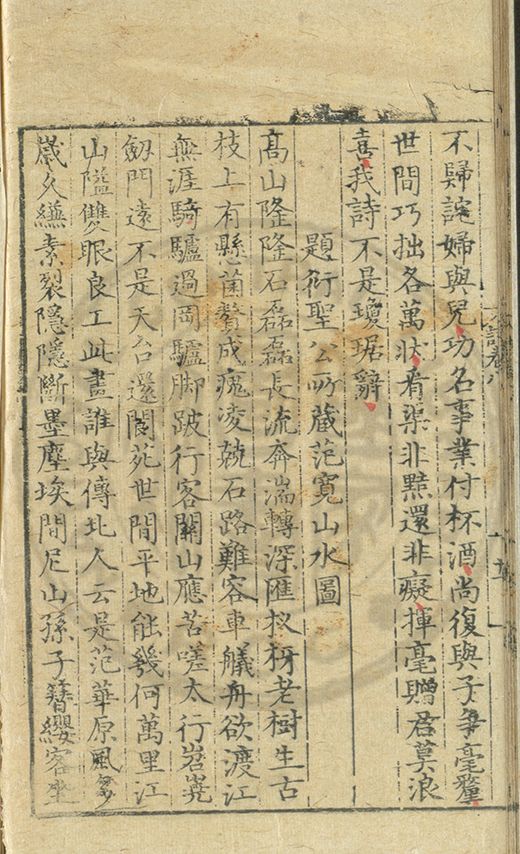 不歸詫婦與兒功名事業付杯酒尚復與子爭毫釐
世間巧拙各萬狀看渠非黠還非癡揮毫贈君莫浪
喜我詩不是瓊琚辭
題衍聖公所藏范寬山水圖
高山隆隆石磊磊長流奔湍轉深匯杈枒老樹生古
枝上有懸菌贅成瘣凌兢石路難容車艤舟欲渡江
無涯騎驢過岡驢脚跛行客關山應苦嗟太行岧嶤
劒門遠不是天台還閬苑世間平地能幾何萬里江
山隘雙眼良工此畫誰與傳北人云是范華原風
歲久縑素裂隱隱斷墨塵埃間尼山孫子簪纓客坐